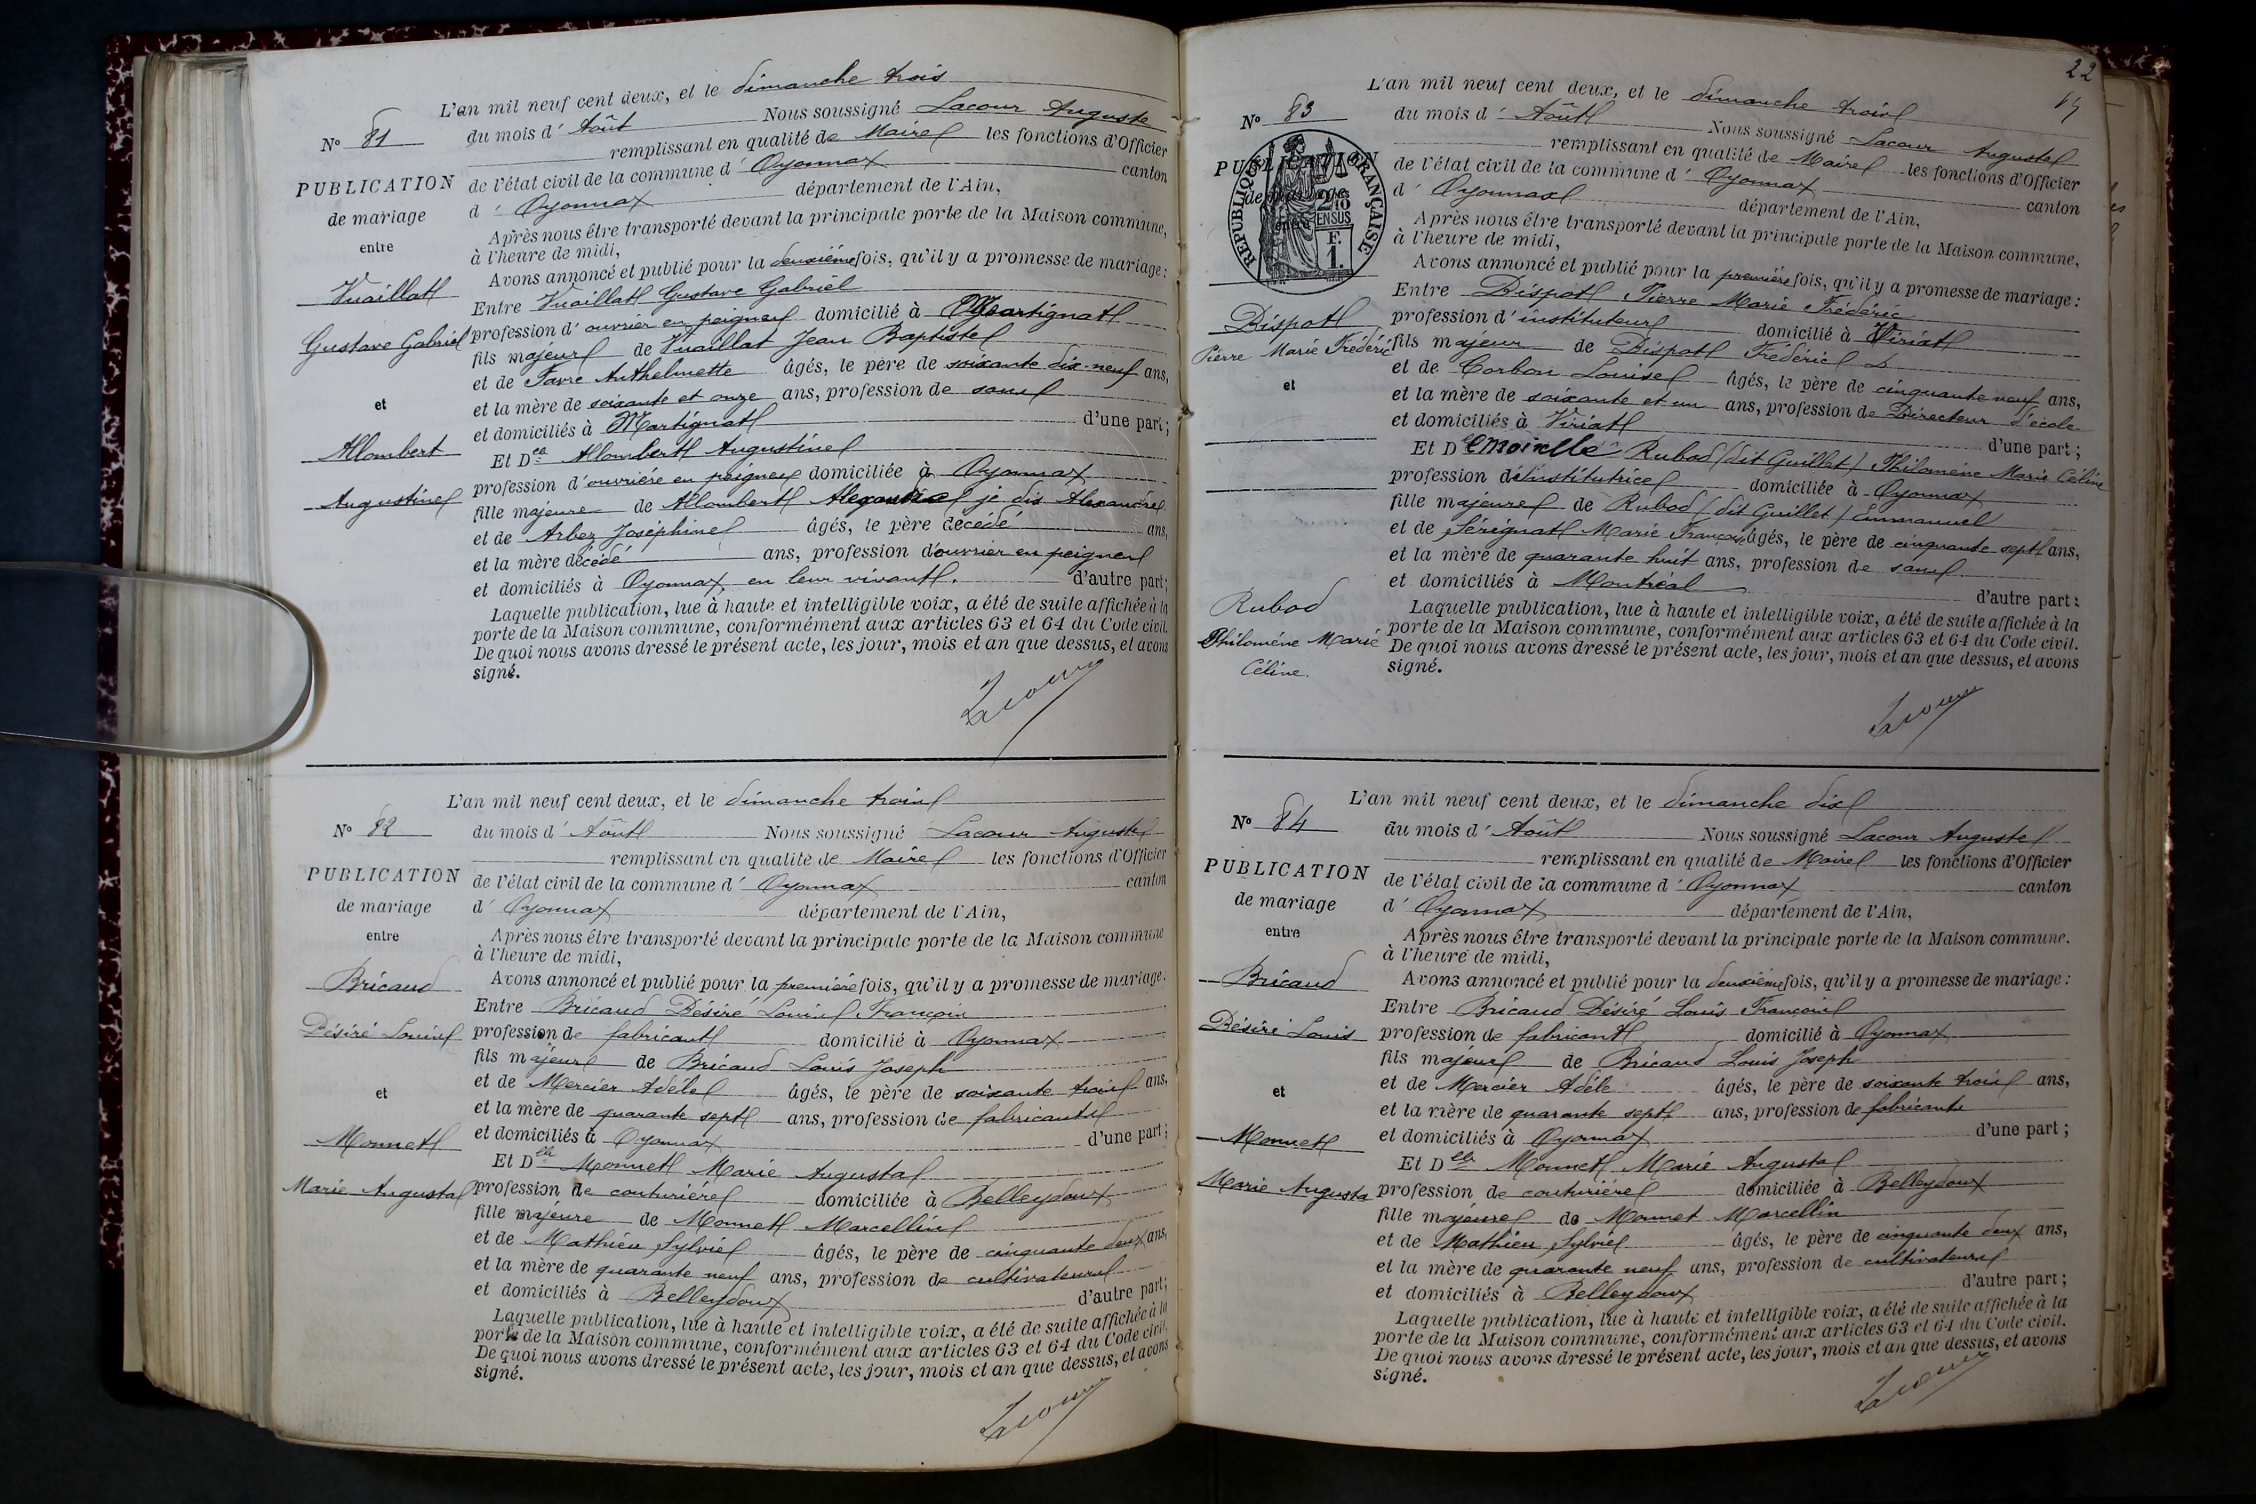 L'an mil neuf cent deux, et le dimanche trois
N° 81
du mois d' Août Nous soussigné Lacour Auguste
remplissant en qualité de Maire les fonctions d'Officier
PUBLICATION
de mariage
entre
de l'état civil de la commune d' Oyonnax canton
d' Oyonnax département de l'Ain,
Après nous être transporté devant la principale porte de la Maison commune,
à l'heure de midi,
Avons annoncé et publié pour la deuxième fois, qu'il y a promesse de mariage :
Vuaillat
Gustave Gabriel
Entre Vuaillat Gustave Gabriel
profession d' ouvrier en peignes domicilié à Martignat
fils majeur de Vuaillat Jean Baptiste
et de Favre Anthelmette âgés, le père de soixante dix-neuf ans,
et
et la mère de soixante et onze ans, profession de sans
et domiciliés à Martignat d'une part ;
Allombert
Augustine
Et D Allombert Augustine
profession d'ouvrière en peignes domiciliée à Oyonnax
fille majeure de Allombert je dis Alexandre
et de Arbez Joséphine âgés, le père décédé ans,
et la mère décédé ans, profession d'ouvrier en peignes
et domiciliés à Oyonnax en leur vivant. d'autre part ;
Laquelle publication, lue à haute et intelligible voix, a été de suite affichée à la
porte de la Maison commune, conformément aux articles 63 et 64 du Code civil.
De quoi nous avons dressé le présent acte, les jour, mois et an que dessus, et avons
signé.
Lacour
L'an mil neuf cent deux, et le dimanche trois
N° 82
du mois d' Août Nous soussigné Lacour Auguste
remplissant en qualité de Maire les fonctions d'Officier
PUBLICATION
de mariage
entre
de l'état civil de la commune d' Oyonnax canton
d' Oyonnax département de l'Ain,
Après nous être transporté devant la principale porte de la Maison commune
à l'heure de midi,
Avons annoncé et publié pour la première fois, qu'il y a promesse de mariage.
Bricaud
Désiré Louis
Entre Bricaud Désiré Louis François
profession de fabricant domicilié à Oyonnax
fils majeur de Bricaud Louis Joseph
et de Mercier Adèle âgés, le père de soixante trois ans,
et
et la mère de quarante sept ans, profession de fabricants
et domiciliés à Oyonnax d'une part ;
Monnet
Marie Augusta
Et Delle Monnet Marie Augusta
profession de couturière domiciliée à Belleydoux
fille majeure de Monnet Marcellin
et de Mathieu Sylvie âgés, le père de cinquante deux ans,
et la mère de quarante neuf ans, profession de cultivateurs
et domiciliés à Belleydoux d'autre part ;
Laquelle publication, lue à haute et intelligible voix, a été de suite affichée à la
porte de la Maison commune, conformément aux articles 63 et 64 du Code civil.
De quoi nous avons dressé le présent acte, les jour, mois et an que dessus, et avons
signé.
Lacour
22
L'an mil neuf cent deux, et le dimanche trois
N° 83
du mois d' Août Nous soussigné Lacour Auguste
remplissant en qualité de Maire les fonctions d'Officier
PUBLICATION
de mariage
entre
REPUBLIQUE FRANÇAISE
2/10
EN SUS
F.
1.
de l'état civil de la commune d' Oyonnax canton
d' Oyonnax département de l'Ain,
Après nous être transporté devant la principale porte de la Maison commune,
à l'heure de midi,
Avons annoncé et publié pour la première fois, qu'il y a promesse de mariage :
Dispot
Pierre Marie Frédéric
Entre Dispot Pierre Marie Frédéric
profession d'instituteur domicilié à Viriat
fils majeur de Dispot Frédéric
et de Corbon Louise âgés, le père de cinquante neuf ans,
et
et la mère de soixante et un ans, profession de Directeur d'école
et domiciliés à Viriat d'une part ;
Et Demoiselle Rubod (dit Guillet) Philomène Marie Céline
profession d'institutrice domiciliée à Oyonnax
fille majeure de Rubod (dit Guillet) Emmanuel
et de Sérignat Marie Françoise âgés, le père de cinquante sept ans,
et la mère de quarante huit ans, profession de sans
et domiciliés à Montréal d'autre part :
Rubod
Philomène Marie
Céline.
Laquelle publication, lue à haute et intelligible voix, a été de suite affichée à la
porte de la Maison commune, conformément aux articles 63 et 64 du Code civil.
De quoi nous avons dressé le présent acte, les jour, mois et an que dessus, et avons
signé.
Lacour
L'an mil neuf cent deux, et le dimanche dix
N° 84
du mois d' Août Nous soussigné Lacour Auguste
remplissant en qualité de Maire les fonctions d'Officier
PUBLICATION
de mariage
entre
de l'état civil de la commune d' Oyonnax canton
d' Oyonnax département de l'Ain,
Après nous être transporté devant la principale porte de la Maison commune.
à l'heure de midi,
Avons annoncé et publié pour la deuxième fois, qu'il y a promesse de mariage :
Bricaud
Désiré Louis
Entre Bricaud Désiré Louis François
profession de fabricant domicilié à Oyonnax
fils majeur de Bricaud Louis Joseph
et de Mercier Adèle âgés, le père de soixante trois ans,
et
et la mère de quarante sept ans, profession de fabricants
et domiciliés à Oyonnax d'une part ;
Monnet
Marie Augusta
Et Delle Monnet Marie Augusta
profession de couturière domiciliée à Belleydoux
fille majeure de Monnet Marcellin
et de Mathieu Sylvie âgés, le père de cinquante deux ans,
et la mère de quarante neuf ans, profession de cultivateurs
et domiciliés à Belleydoux d'autre part ;
Laquelle publication, lue à haute et intelligible voix, a été de suite affichée à la
porte de la Maison commune, conformément aux articles 63 et 64 du Code civil.
De quoi nous avons dressé le présent acte, les jour, mois et an que dessus, et avons
signé.
Lacour